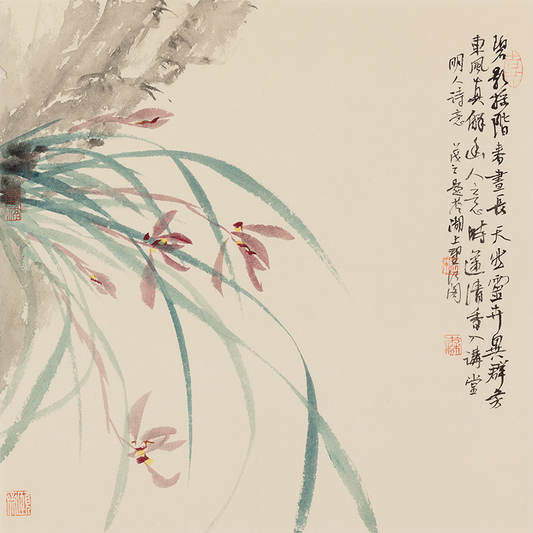 碧影搖階春晝長天生靈卉異群芳
東風真解幽人意時遞清香入講堂
明人詩意 題於湖上